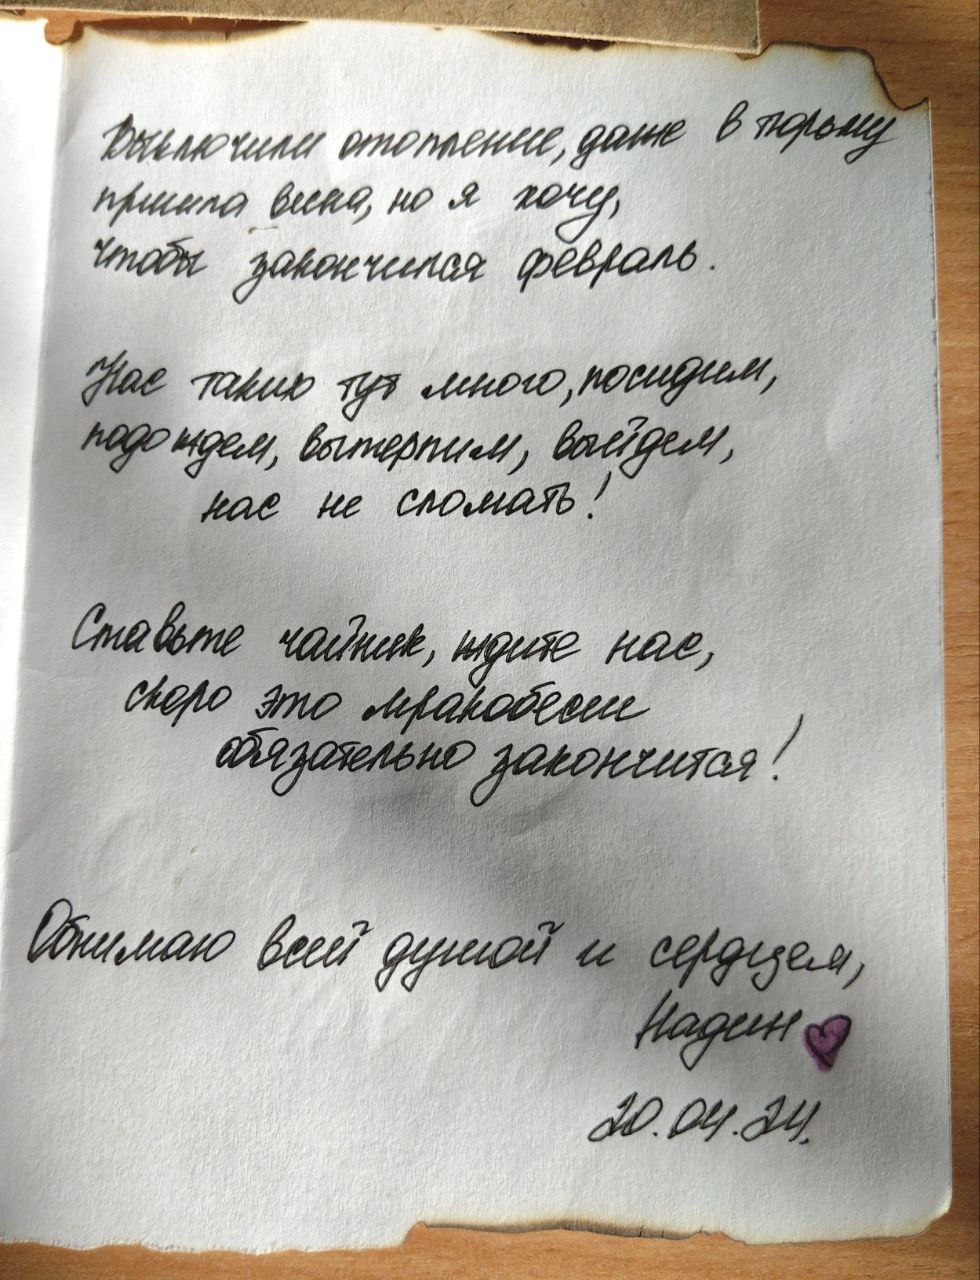 Выключили отопление, даже в тюрьму
пришла весна, но я хочу,
чтобы закончился февраль.
Нас таких тут много, посидим,
подождем, вытерпим, выйдем,
нас не сломать!
Ставьте чайник, ждите нас,
скоро это мракобесие
обязательно закончится!
Обнимаю всей душой и сердцем,
Надин
20.04.24.